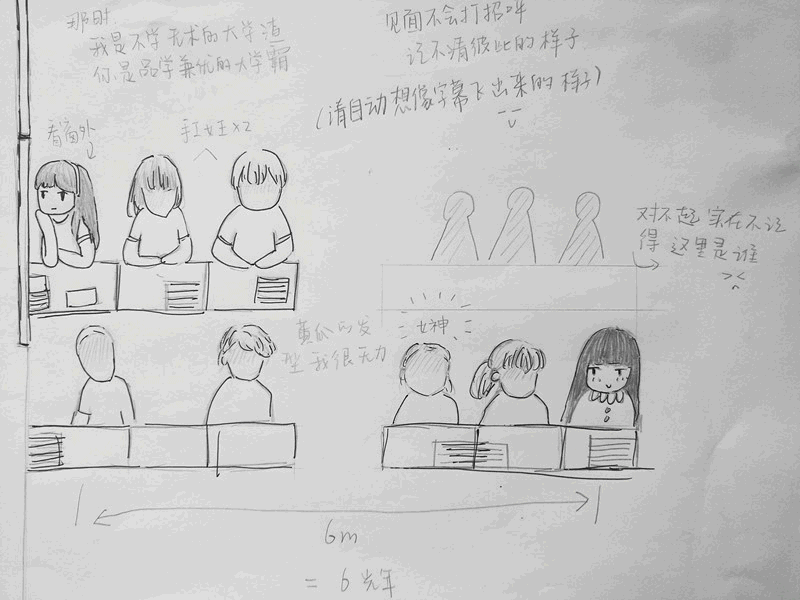 那时
我是不学无术的大学渣
你是品学兼优的大学霸
见面不会打招呼
记不清彼此的样子
(请自动想像字幕飞出来的样子)
看窗外
女王x2
对不起 实在不记
得 这里是谁
女神
黄瓜的发
型 我很无力
6m
= 6光年